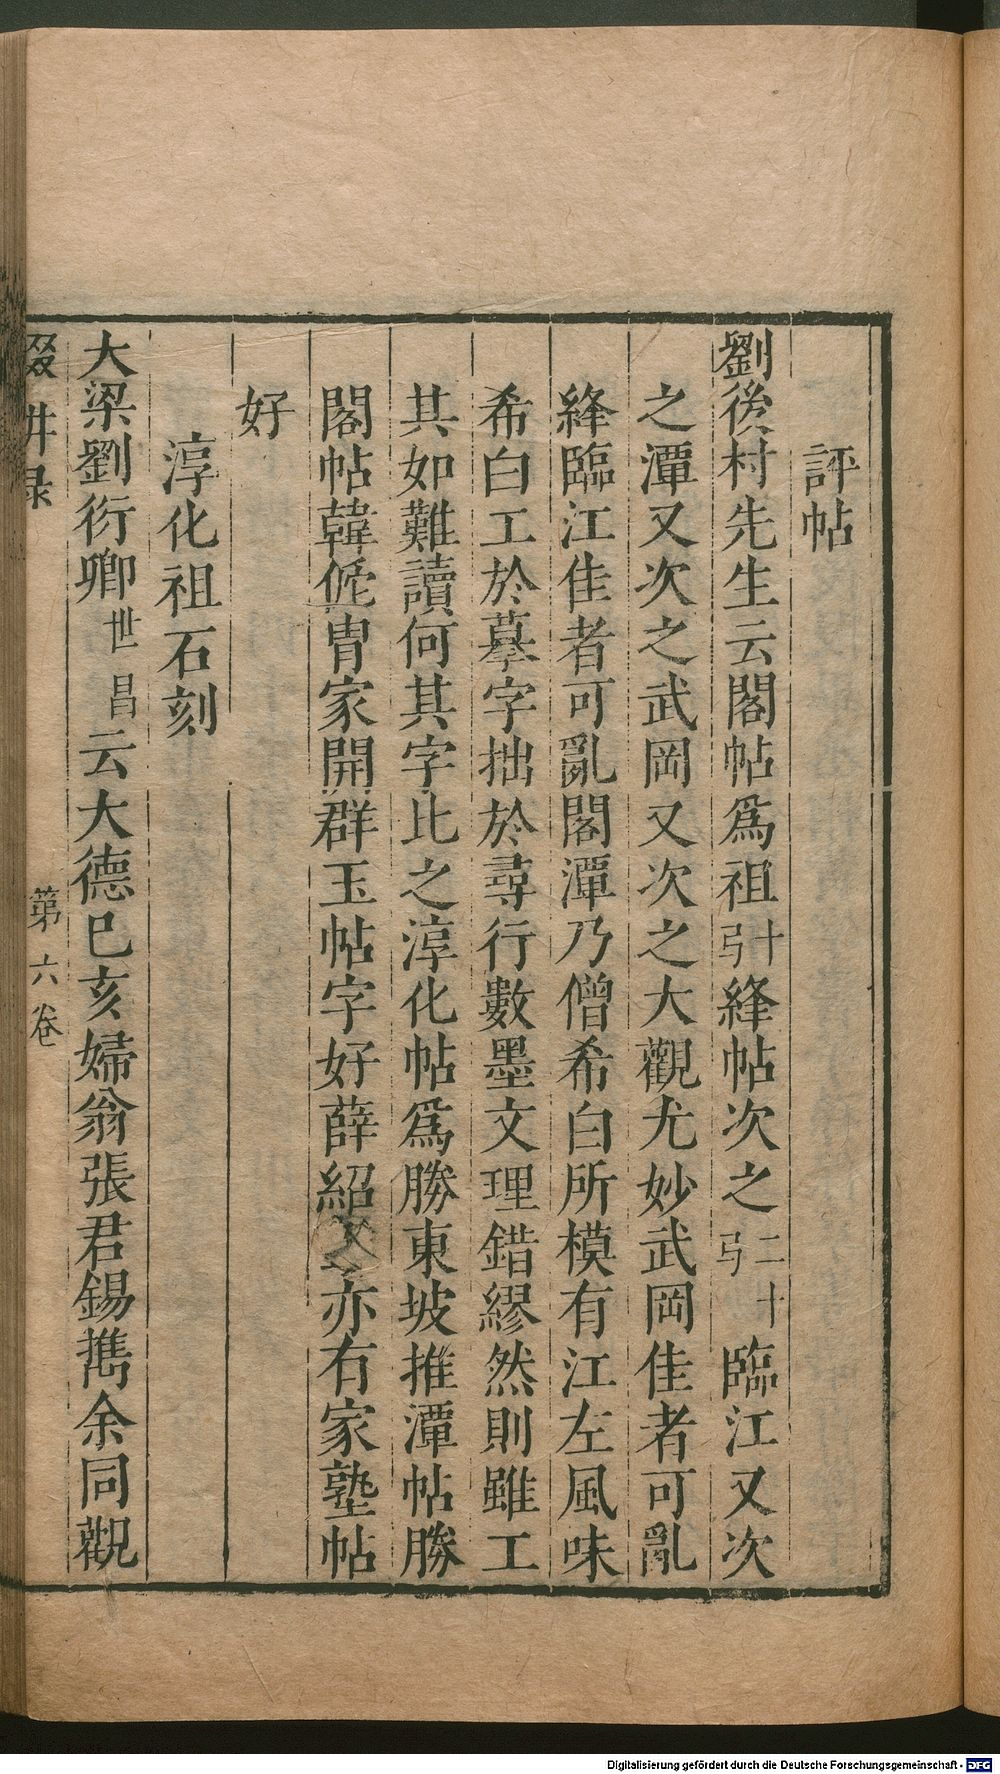 評帖
劉後村先生云閣帖爲祖十弓絳帖次之二十弓臨江又次
之潭又次之武岡又次之大觀尤妙武岡佳者可亂
絳臨江佳者可亂閣潭乃僧希白所模有江左風味
希白工於摹字拙於尋行數墨文理錯繆然則雖工
其如難讀何其字比之淳化帖爲勝東坡推潭帖勝
閣帖韓侂冑家開群玉帖字好薛紹亦有家塾帖
好
淳化祖石刻
大梁劉衍卿世昌云大德己亥婦翁張君錫攜余同觀
第六卷
Digitalisierung gefördert durch die Deutsche Forschungsgemeinschaft - DFG